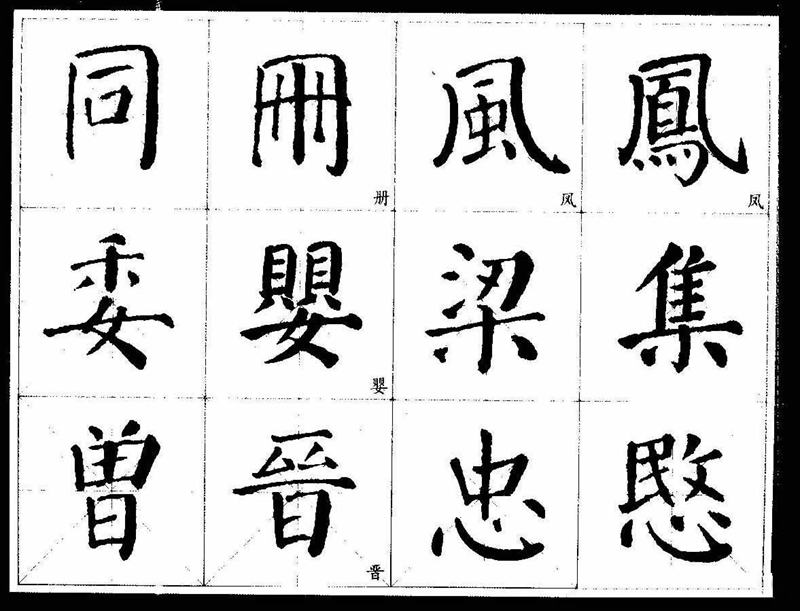 同 冊 風 鳳
册 风 凤
委 嬰 梁 集
婴
曾 晉 忠 愍
晋